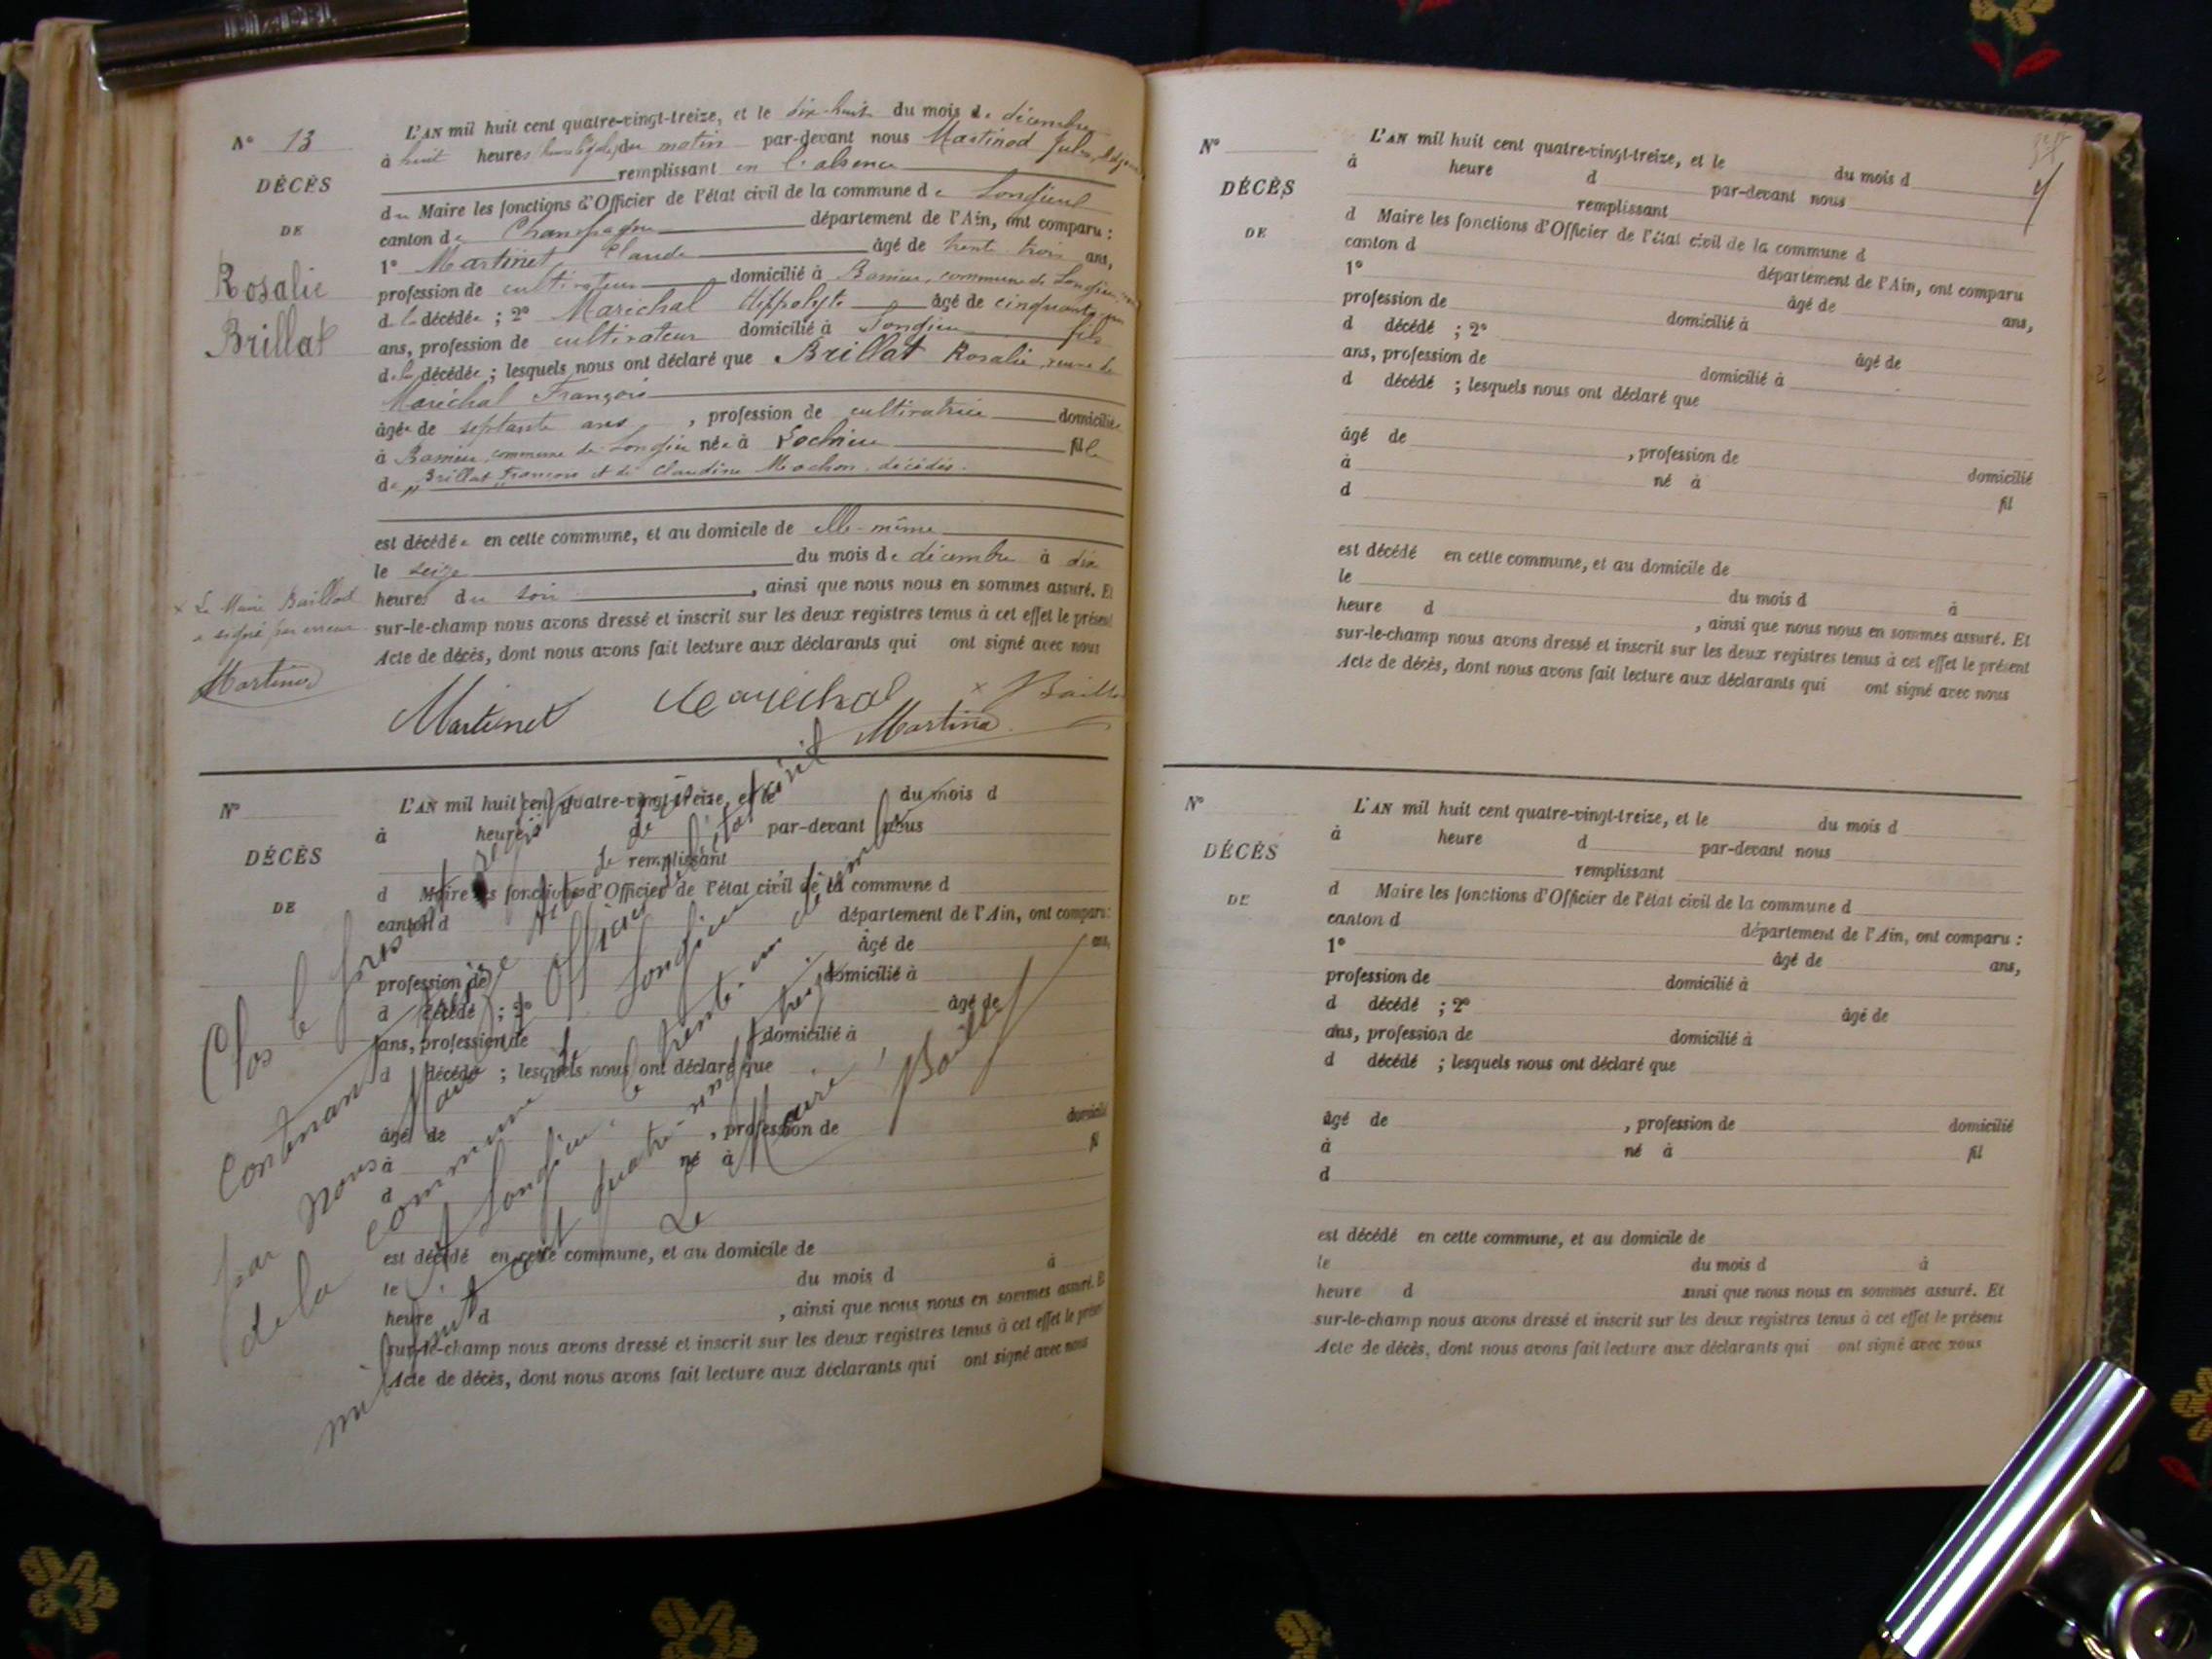 N° 13
DÉCÈS
DE
Rosalie
Brillat
L'AN mil huit cent quatre-vingt-treize, et le dix-huit du mois de décembre
à huit heures du matin par-devant nous Martinod Jules
remplissant en l'absence
du Maire les fonctions d'Officier de l'état civil de la commune de Songieu
canton de Champagne département de l'Ain, ont comparu :
1° Martinet Claude âgé de trente trois ans,
profession de cultivateur domicilié à Bassieu, commune de Songieu
d la décédée ; 2° Maréchal Hippolyte âgé de cinquante
ans, profession de cultivateur domicilié à Songieu fils
de la décédée ; lesquels nous ont déclaré que Brillat Rosalie, veuve de
Maréchal François
âgée de septante ans , profession de cultivatrice domiciliée
à Bassieu commune de Songieu née à Lochieu fille
de Brillat François et de Claudine Mochon, décédés.
est décédée en cette commune, et au domicile de elle-même
le seize du mois de décembre à dix
heures du soir , ainsi que nous nous en sommes assuré. Et
sur-le-champ nous avons dressé et inscrit sur les deux registres tenus à cet effet le présent
Acte de décès, dont nous avons fait lecture aux déclarants qui ont signé avec nous
x Le Maire Baillod
a signé par erreur
Martinod
Martinet Maréchal x Baillod
Martinod
N°
DÉCÈS
DE
L'AN mil huit cent quatre-vingt-treize, et le du mois d
à heure d par-devant nous
remplissant
d Maire les fonctions d'Officier de l'état civil de la commune d
canton d département de l'Ain, ont comparu :
âgé de ans,
profession de domicilié à
d décédé ; 2° âgé de
ans, profession de domicilié à
d décédé ; lesquels nous ont déclaré que
âgé de , profession de domicilié
à né à fil
d
est décédé en cette commune, et au domicile de
le du mois d à
heure d , ainsi que nous nous en sommes assuré. Et
sur-le-champ nous avons dressé et inscrit sur les deux registres tenus à cet effet le présent
Acte de décès, dont nous avons fait lecture aux déclarants qui ont signé avec nous
Clos le présent registre
contenant treize actes de décès
par nous Maire officier de l'état civil
de la commune de Songieu
à Songieu, le trente-un décembre
mil huit cent quatre-vingt treize
Le Maire, Baillod
N°
DÉCÈS
DE
L'AN mil huit cent quatre-vingt-treize, et le du mois d
à heure d par-devant nous
remplissant
d Maire les fonctions d'Officier de l'état civil de la commune d
canton d département de l'Ain, ont comparu
1° âgé de ans,
profession de domicilié à
d décédé ; 2° âgé de
ans, profession de domicilié à
d décédé ; lesquels nous ont déclaré que
âgé de , profession de domicilié
à né à fil
d
est décédé en cette commune, et au domicile de
le du mois d à
heure d , ainsi que nous nous en sommes assuré. Et
sur-le-champ nous avons dressé et inscrit sur les deux registres tenus à cet effet le présent
Acte de décès, dont nous avons fait lecture aux déclarants qui ont signé avec nous
N°
DÉCÈS
DE
L'AN mil huit cent quatre-vingt-treize, et le du mois d
à heure d par-devant nous
remplissant
d Maire les fonctions d'Officier de l'état civil de la commune d
canton d département de l'Ain, ont comparu :
1° âgé de ans,
profession de domicilié à
d décédé ; 2° âgé de
ans, profession de domicilié à
d décédé ; lesquels nous ont déclaré que
âgé de , profession de domicilié
à né à fil
d
est décédé en cette commune, et au domicile de
le du mois d à
heure d ainsi que nous nous en sommes assuré. Et
sur-le-champ nous avons dressé et inscrit sur les deux registres tenus à cet effet le présent
Acte de décès, dont nous avons fait lecture aux déclarants qui ont signé avec nous